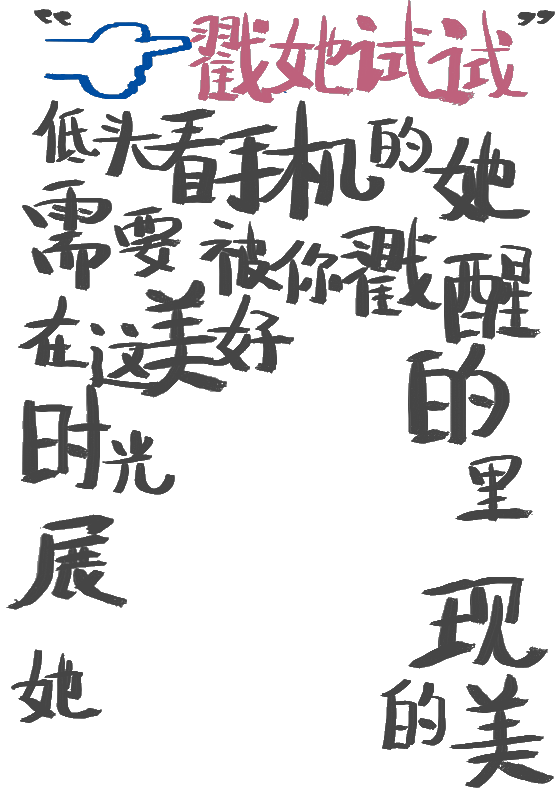 “戳她试试”
低头看手机的她
需要被你戳醒
在这美好的
时光里
展现
她的美